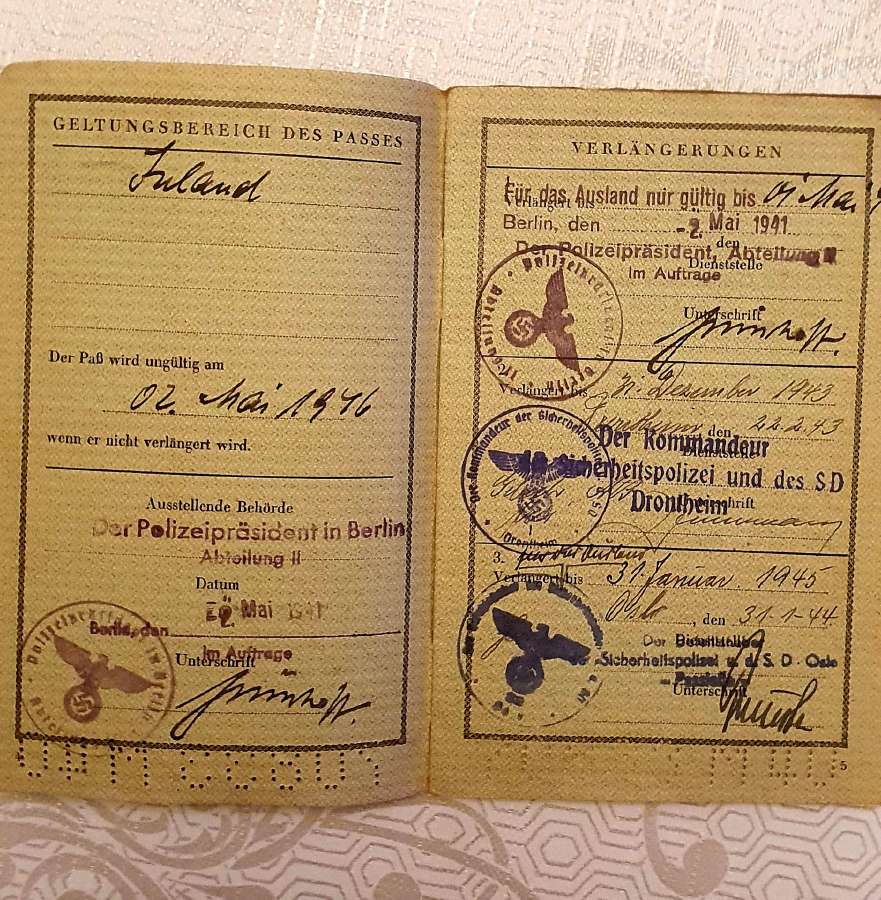 GELTUNGSBEREICH DES PASSES
Inland
Der Paß wird ungültig am
02. Mai 1946
wenn er nicht verlängert wird.
Ausstellende Behörde
Der Polizeipräsident in Berlin
Abteilung II
Datum
Mai 1941
Berlin, den
Im Auftrage
Unterschrift
VERLÄNGERUNGEN
Für das Ausland nur gültig bis 01 Mai
Verlängert bis
Berlin, den -2. Mai 1941
den
Der Polizeipräsident, Abteilung II
Dienststelle
Im Auftrage
Unterschrift
Verlängert bis 31. Dezember 1943
Drontheim, den 22.2.43
Der Kommandeur
Dienststelle
der Sicherheitspolizei und des SD
Drontheim
Unterschrift
Der Kommandeur der Sicherheitspolizei
Drontheim
3. für das Ausland
Verlängert bis 31. Januar 1945
Oslo, den 31.1.44
Der Befehlshaber
Dienststelle
Sicherheitspolizei u. d. S D - Oslo
Unterschrift
5